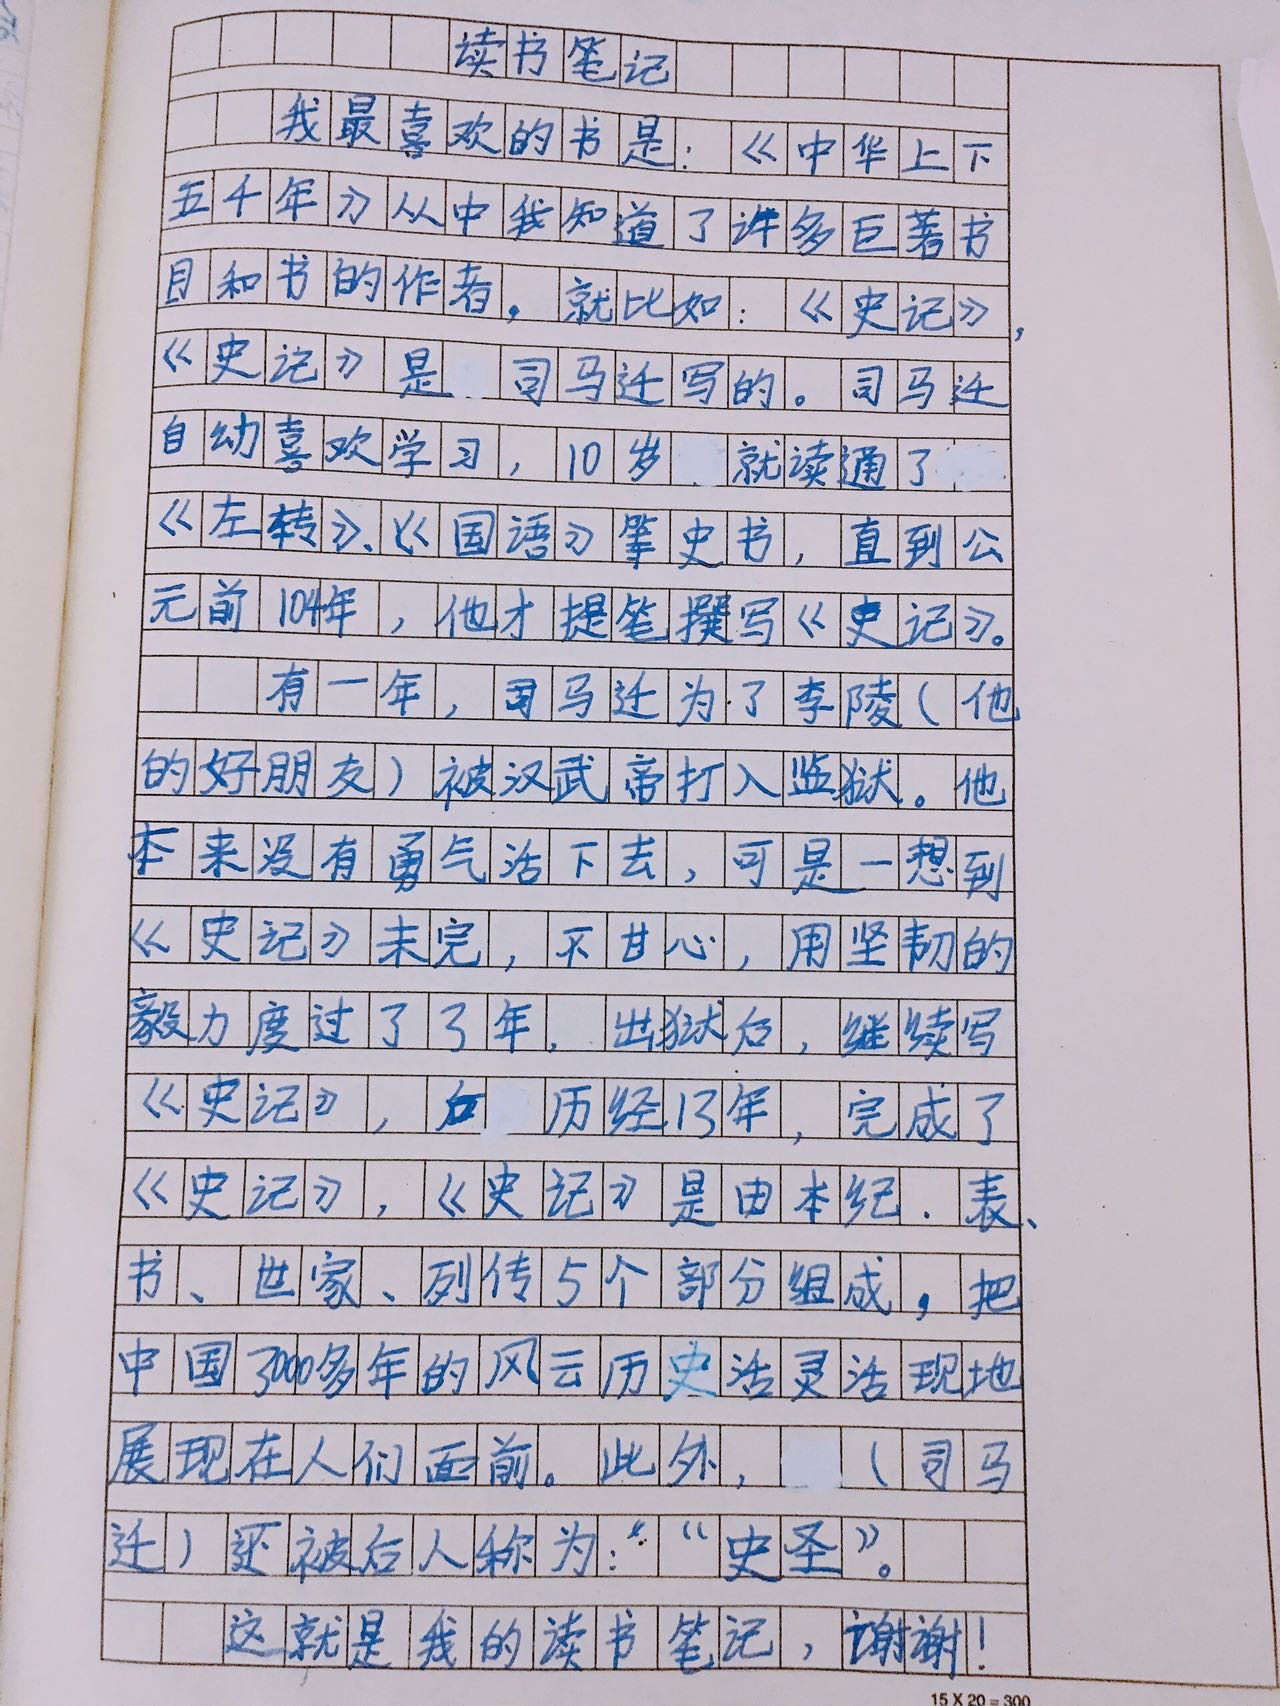 读书笔记
我最喜欢的书是：《中华上下
五千年》从中我知道了许多巨著书
目和书的作者。就比如：《史记》，
《史记》是司马迁写的。司马迁
自幼喜欢学习，10岁就读通了
《左转》、《国语》笔史书，直到公
元前104年，他才提笔撰写《史记》。
有一年，司马迁为了李陵（他
的好朋友）被汉武帝打入监狱。他
本来没有勇气活下去，可是一想到
《史记》未完，不甘心，用坚韧的
毅力度过了3年。出狱后，继续写
《史记》，历经13年，完成了
《史记》，《史记》是由本纪．表、
书、世家、列传5个部分组成，把
中国3000多年的风云历史活灵活现地
展现在人们面前。此外，（司马
迁）还被后人称为：“史圣”。
这就是我的读书笔记，谢谢！
15 X 20 = 300